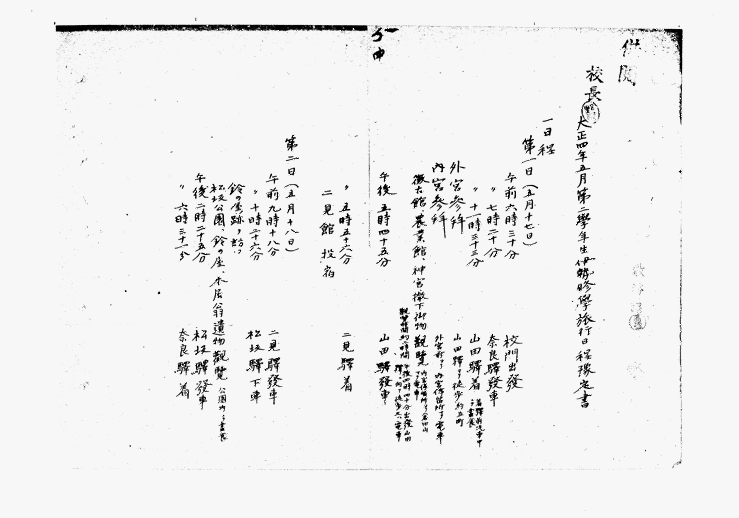 供閲
校長
大正四年五月第二學年生伊勢修學旅行日程豫定書
一日程
第一日(五月十七日)
午前六時三十分 校門出發
〃 七時二十分 奈良驛發車
〃 十一時三十三分 山田驛着
外宮參拜 山田驛ヨリ徒歩約五町
内宮參拜 外宮前ヨリ内宮停留所マデ電車
徴古館、農業館、神宮徴下御物觀覽
午後五時四十五分 山田驛發車
〃 五時五十六分 二見驛着
二見館 投宿
第二日(五月十八日)
午前九時十八分 二見驛發車
〃 十時二十六分 松坂驛下車
鈴の屋跡ヲ訪ヒ
松坂公園、鈴の屋、本居翁遺物觀覽 公園内ニテ晝食
午後二時二十五分 松坂驛發車
〃 六時三十一分 奈良驛着